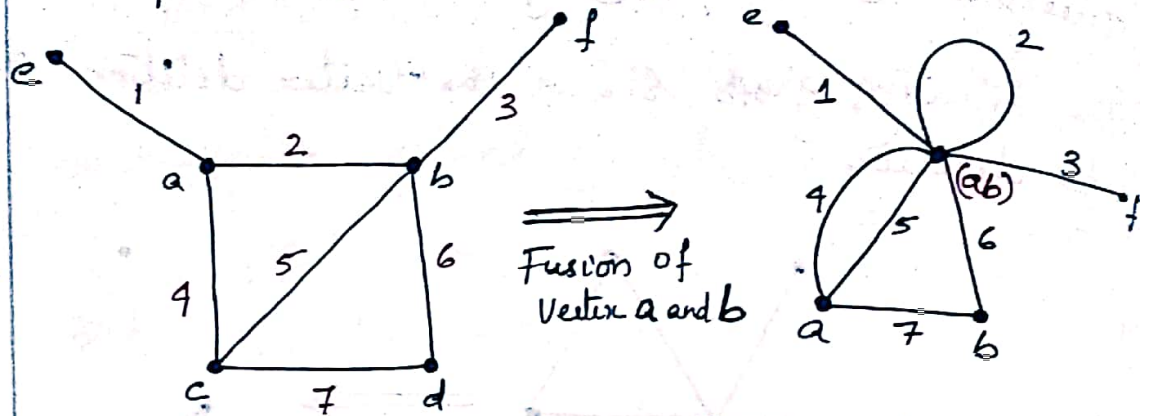 e
1
a
2
b
3
f
4
5
6
c
7
d
Fusion of
Vertex a and b
e
1
2
(ab)
3
f
4
5
6
a
7
b